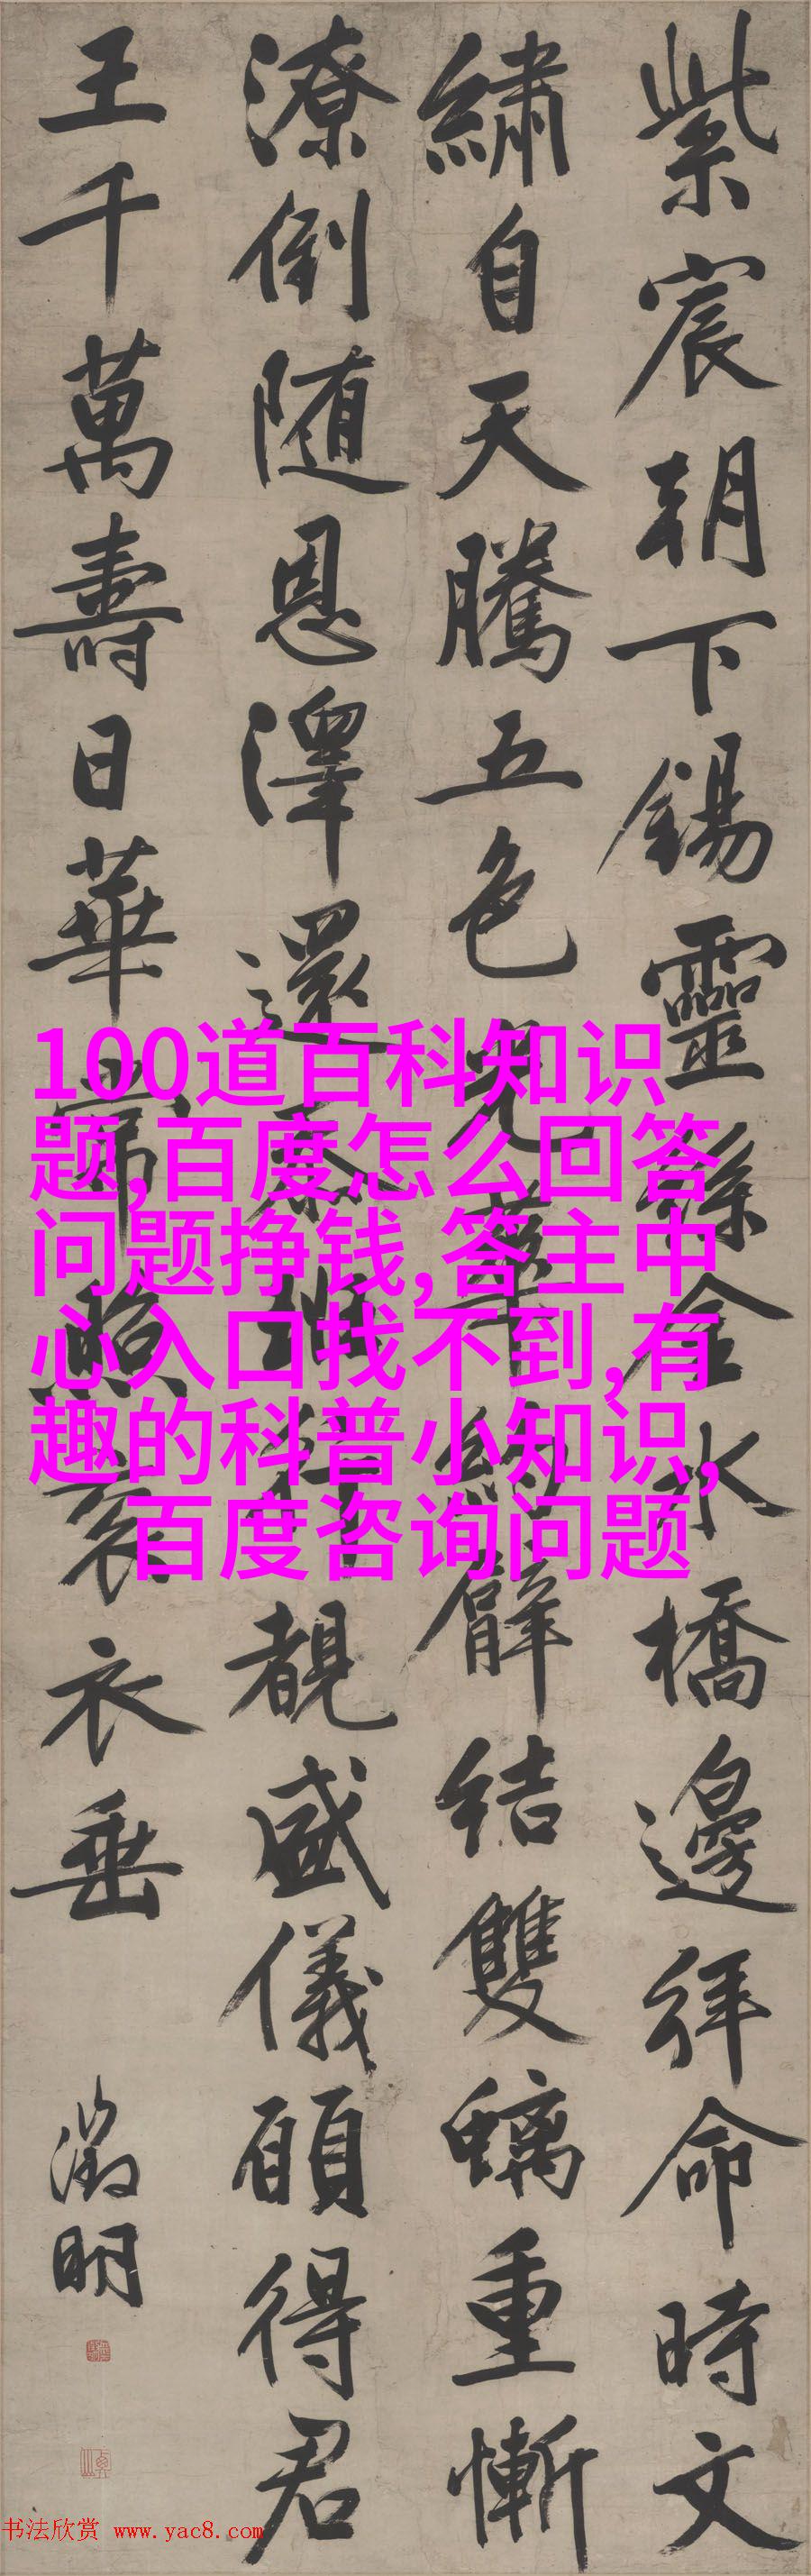 紫宸朝下錫靈絲金水橋邊拜命時文
繡自天騰五色華約臂結雙螭重慚
潦倒隨恩澤還覩盛儀願得君
王千萬壽日華常照袞衣垂
徵明
100道百科知识
题,百度怎么回答
问题挣钱,答主中
心入口找不到,有
趣的科普小知识,
百度咨询问题
书法欣赏 www.yac8.com